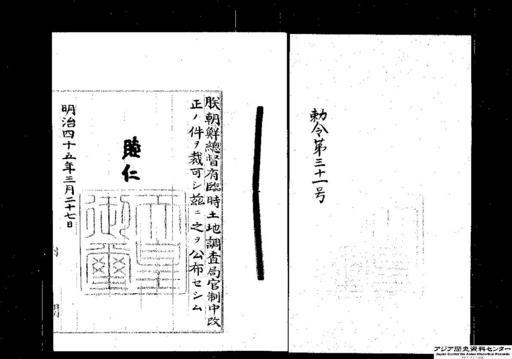 勅令第三十一号
朕朝鮮總督府臨時土地調査局官制中改
正ノ件ヲ裁可シ茲ニ之ヲ公布セシム
睦仁
天皇御璽
明治四十五年三月二十七日
アジア歴史資料センター
Japan Center for Asian Historical Records